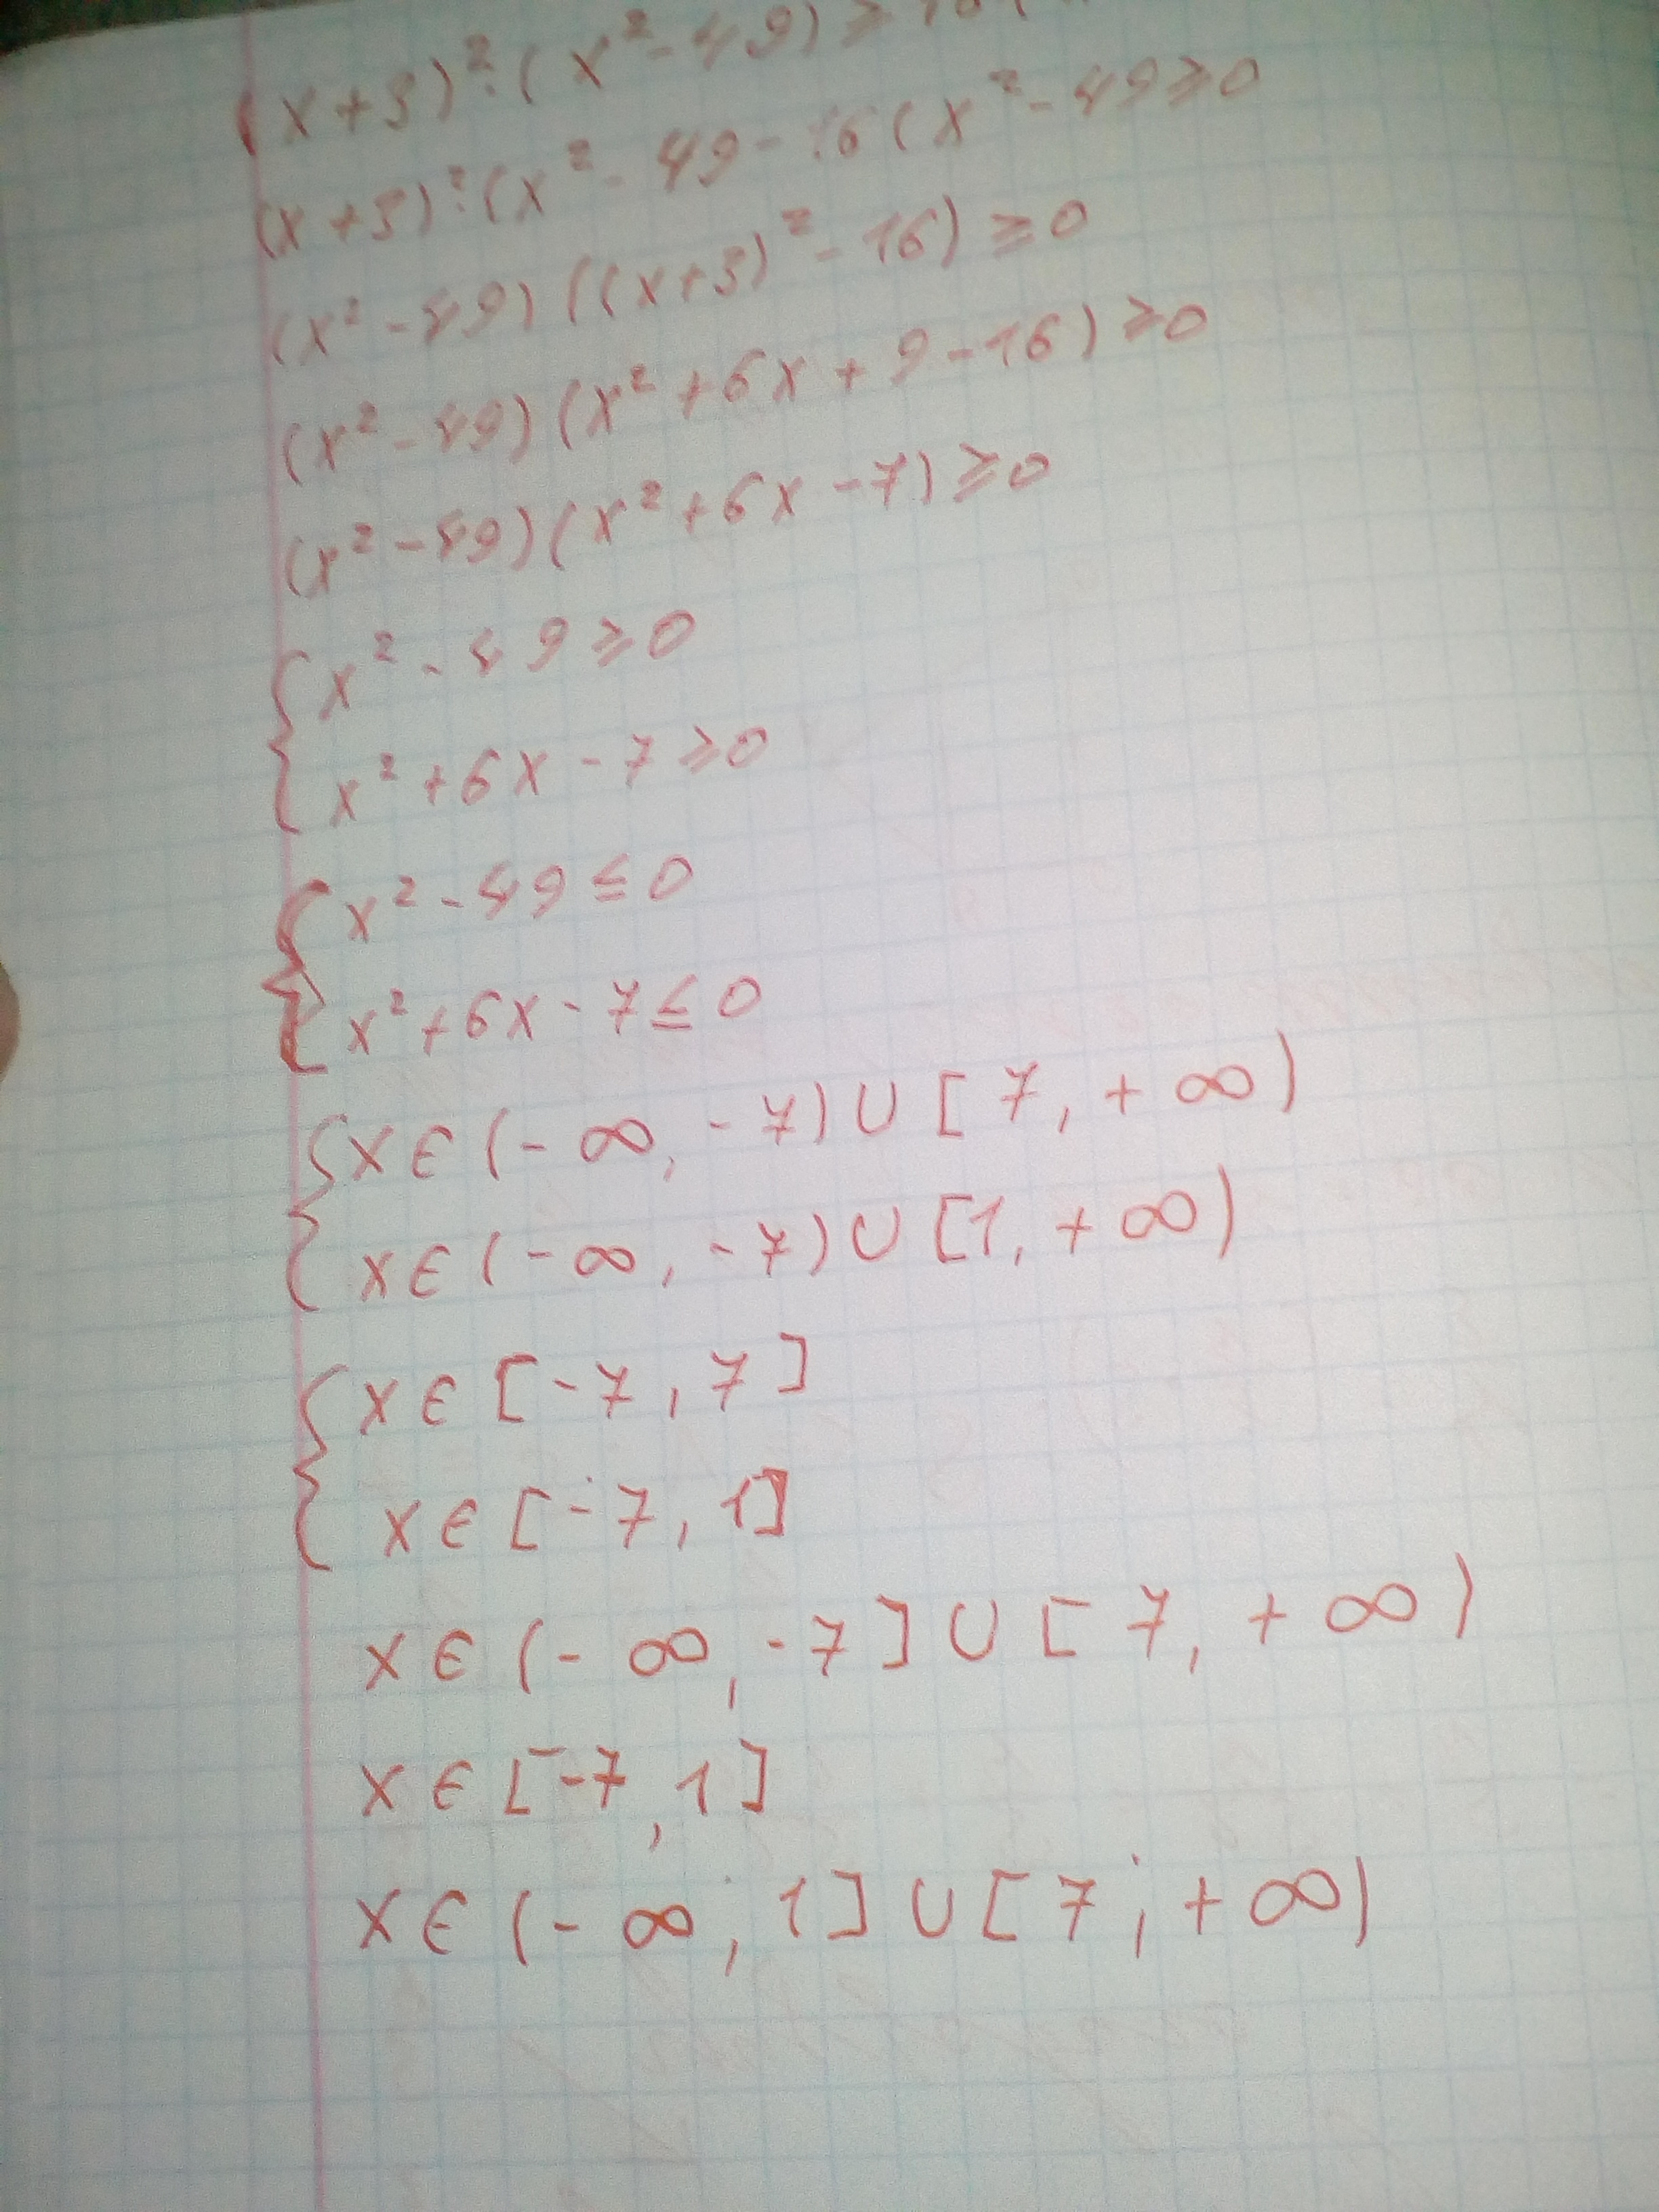 (x+3)²·(x²-49)≥16(
(x+3)²·(x²-49-16(x²-49≥0
(x²-49)((x+3)²-16)≥0
(x²-49)(x²+6x+9-16)≥0
(x²-49)(x²+6x-7)≥0
{x²-49≥0
x²+6x-7≥0
{x²-49≤0
x²+6x-7≤0
{x∈(-∞,-7)∪[7,+∞)
x∈(-∞,-7)∪[1,+∞)
{x∈[-7,7]
x∈[-7,1]
x∈(-∞,-7]∪[7,+∞)
x∈[-7,1]
x∈(-∞;1]∪[7;+∞)